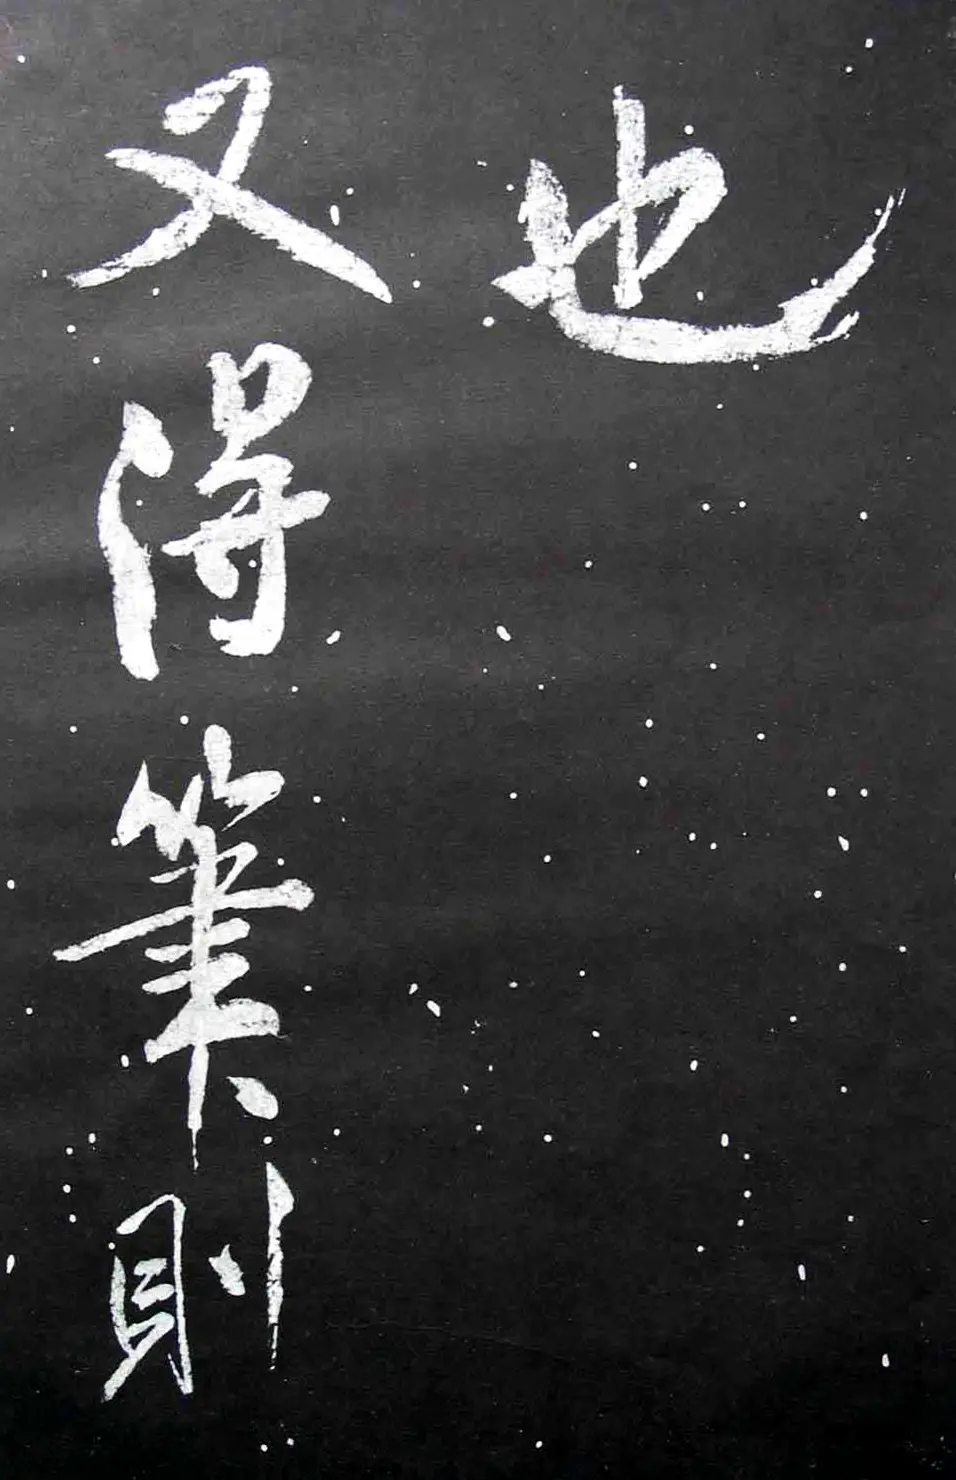 也
又得筆則